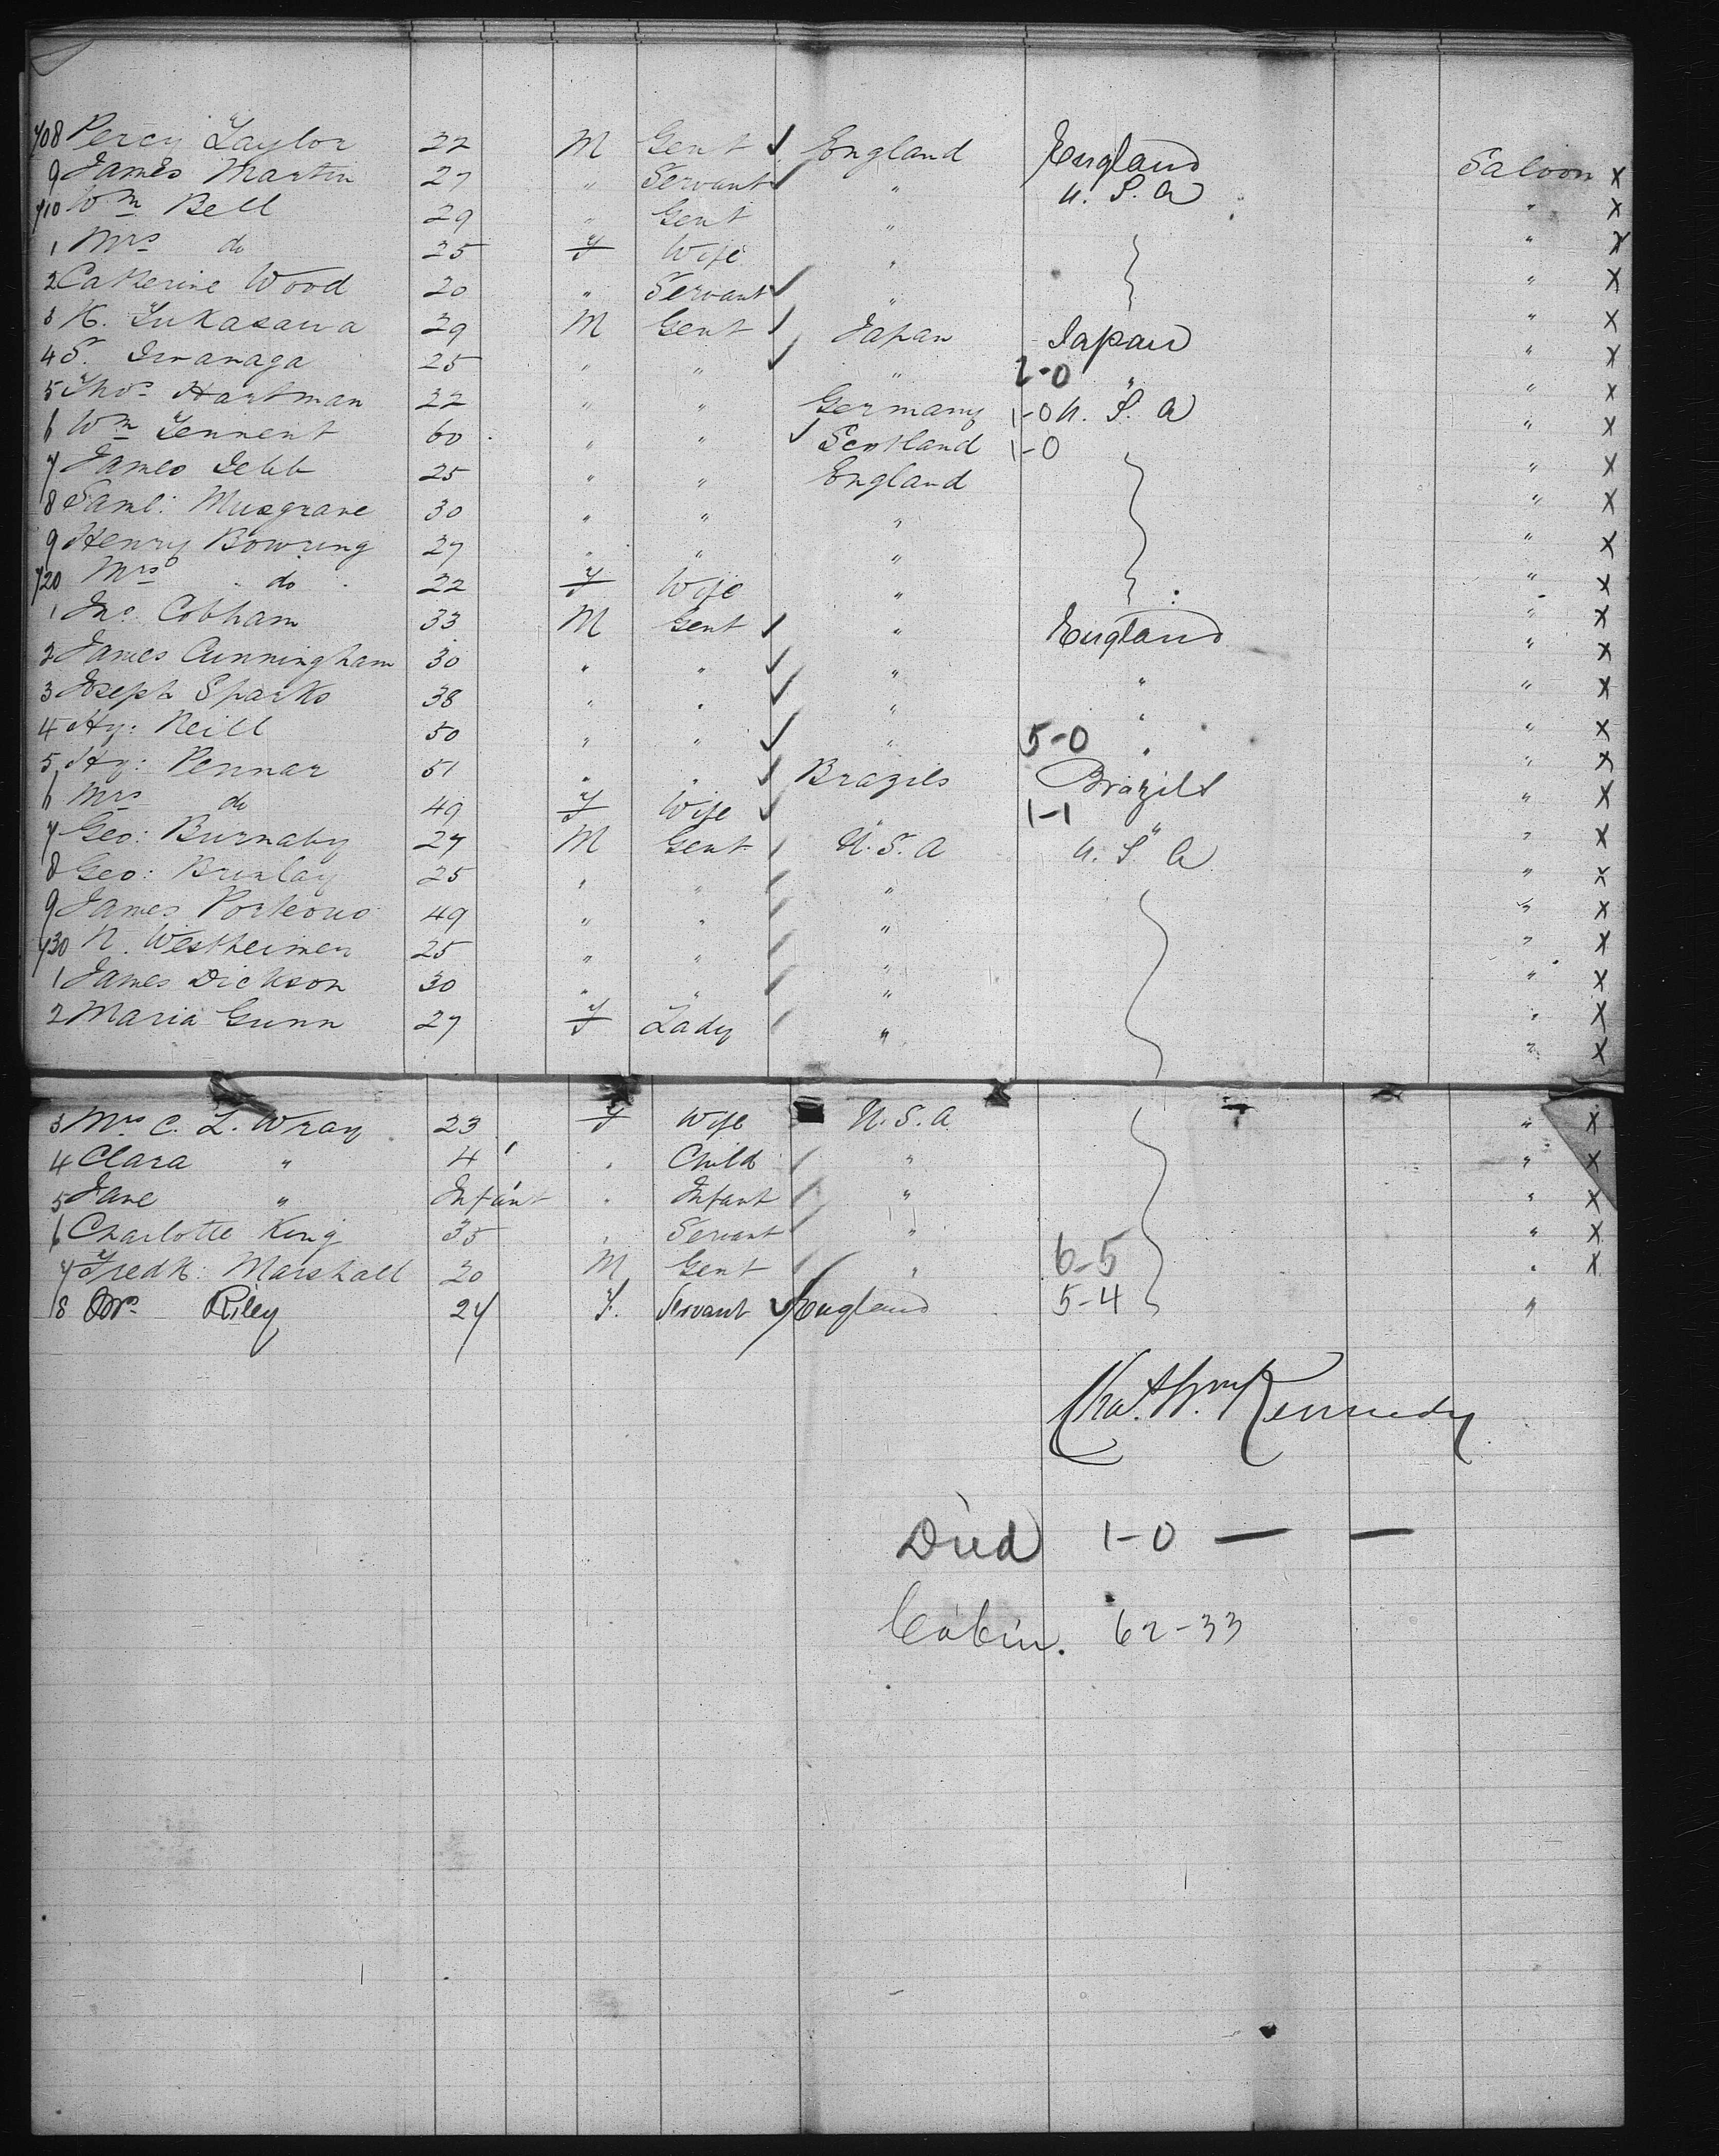 708 Percy Taylor 22 M Gent ✓ England England Saloon X
9 James Martin 27 " Servant ✓ " U.S.A " X
710 Wm Bell 29 " Gent " " X
1 Mrs do 25 F Wife " " X
2 Catherine Wood 20 " Servant ✓ " " X
3 K. Fukasawa 29 M Gent ✓ Japan Japan " X
4 S. Iwanaga 25 " " ✓ " 2-0 " " X
5 Thos Hartman 22 " " Germany 1-0 U.S.A " X
6 Wm Tennent 60 " " ✓ Scotland 1-0 " X
7 James Jebb 25 " " England " X
8 Saml: Musgrave 30 " " " " X
9 Henry Bowring 27 " " " " X
720 Mrs do 22 F Wife " " X
1 Jno Cobham 33 M Gent ✓ " England " X
2 James Cunningham 30 " " ✓ " " " X
3 Joseph Sparks 38 " " ✓ " " " X
4 Hy: Neill 50 " " ✓ " 5-0 " " X
5 Hy: Pennar 51 " " ✓ Brazils Brazils " X
6 Mrs do 49 F Wife ✓ " 1-1 " " X
7 Geo: Burnaby 27 M Gent / U.S.A U.S.A " X
8 Geo: 25 " " / " " X
9 James Porteous 49 " " / " " X
730 N. Westheimer 25 " " / " " X
1 James Dickson 30 " " / " " X
2 Maria Gunn 27 F Lady / " " X
3 Mrs C. L. Wray 23 F Wife U.S.A " X
4 Clara " 4 " Child / " " X
5 Jane " Infant " Infant / " " X
6 Charlotte King 35 " Servant / " " X
7 Fredk: Marshall 20 M Gent / " 6-5 " X
8 Mrs Riley 24 F. Servant ✓ England 5-4 "
Chas. Wm Kennedy
Died 1-0 — —
Cabin. 62-33